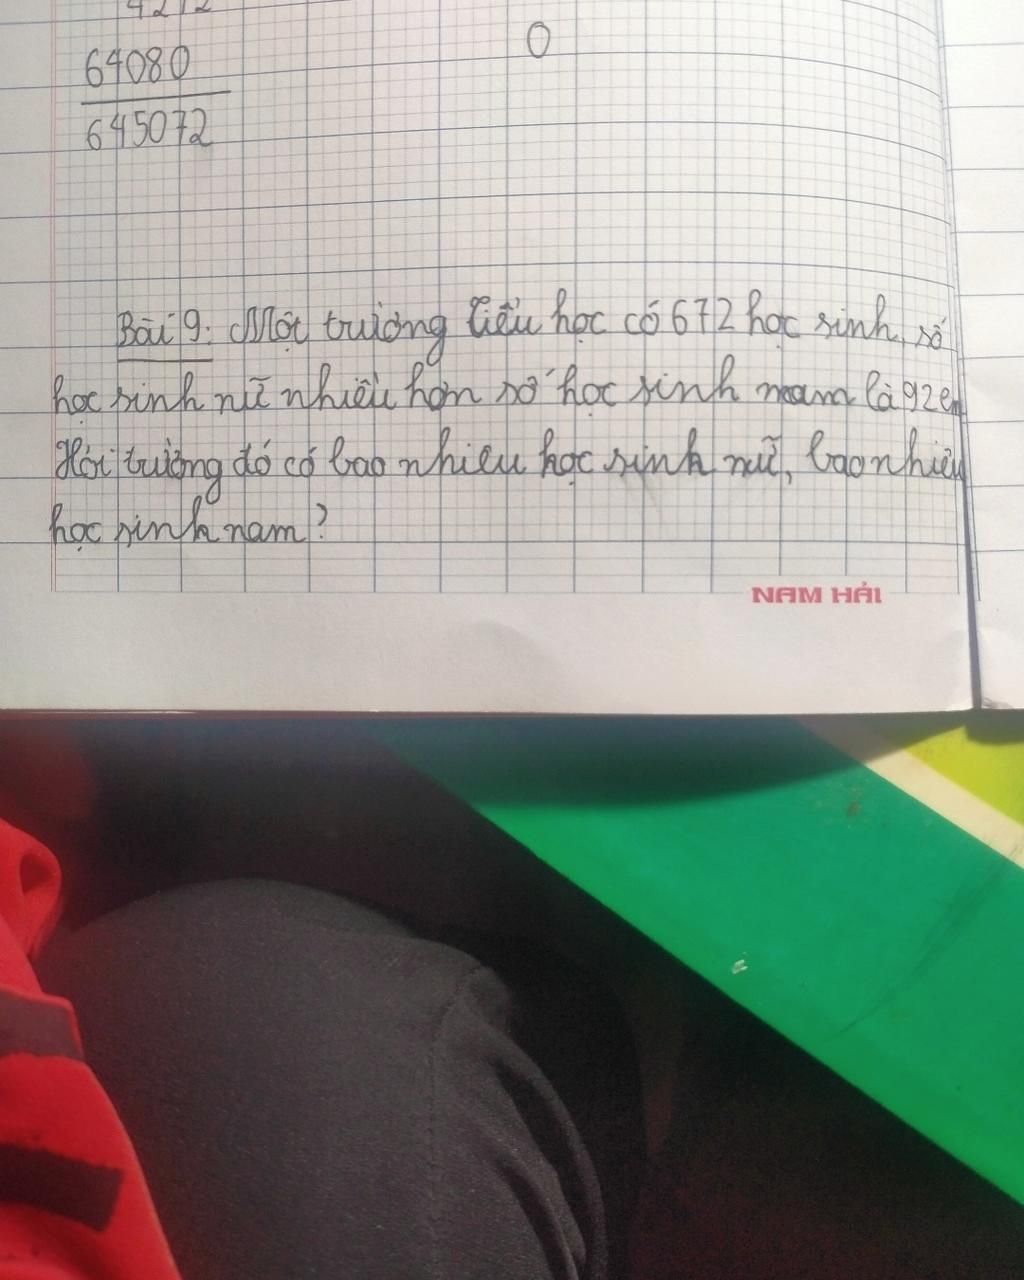 64080
0
645072
Bài 9: Một trường Tiểu học có 672 học sinh, số
học sinh nữ nhiều hơn số học sinh nam là 92 em
Hỏi trường đó có bao nhiêu học sinh nữ, bao nhiêu
học sinh nam?
NAM HẢI